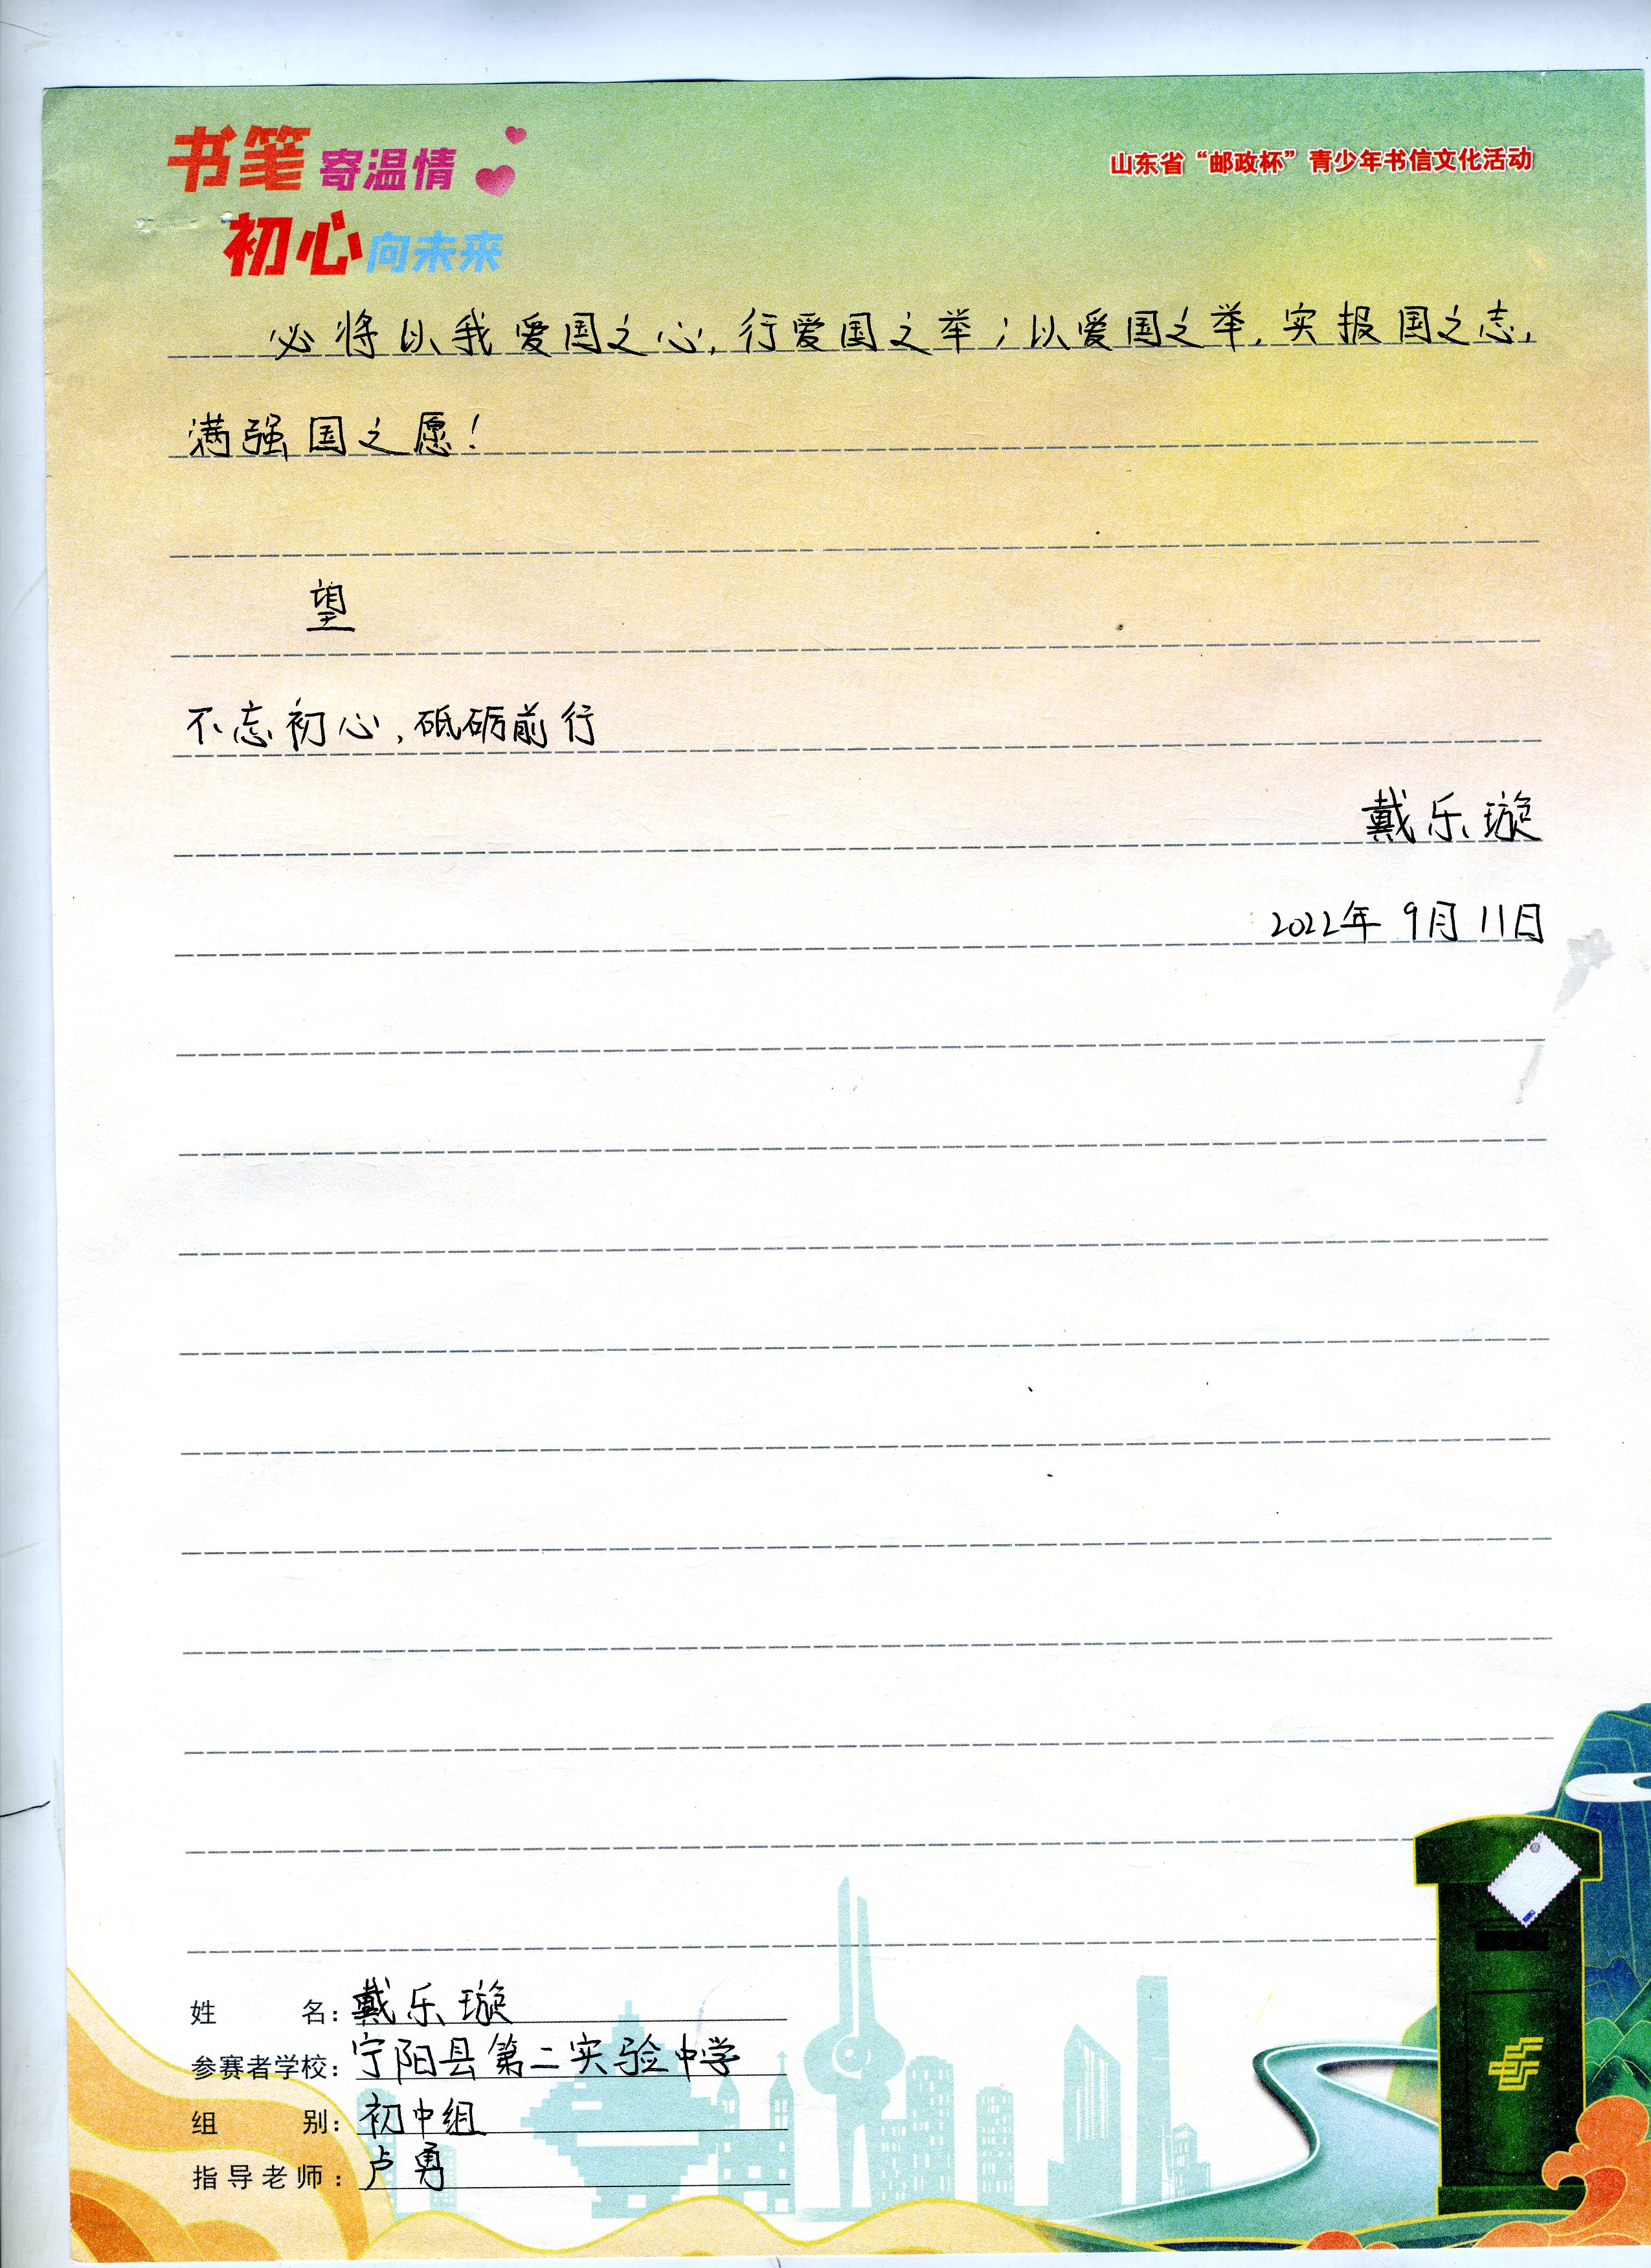 书笔寄温情
初心向未来
山东省“邮政杯”青少年书信文化活动
必将以我爱国之心,行爱国之举;以爱国之举,实报国之志,
满强国之愿!
望
不忘初心,砥砺前行
戴乐璇
2022年9月11日
姓名:戴乐璇
参赛者学校:宁阳县第二实验中学
组别:初中组
指导老师:卢勇